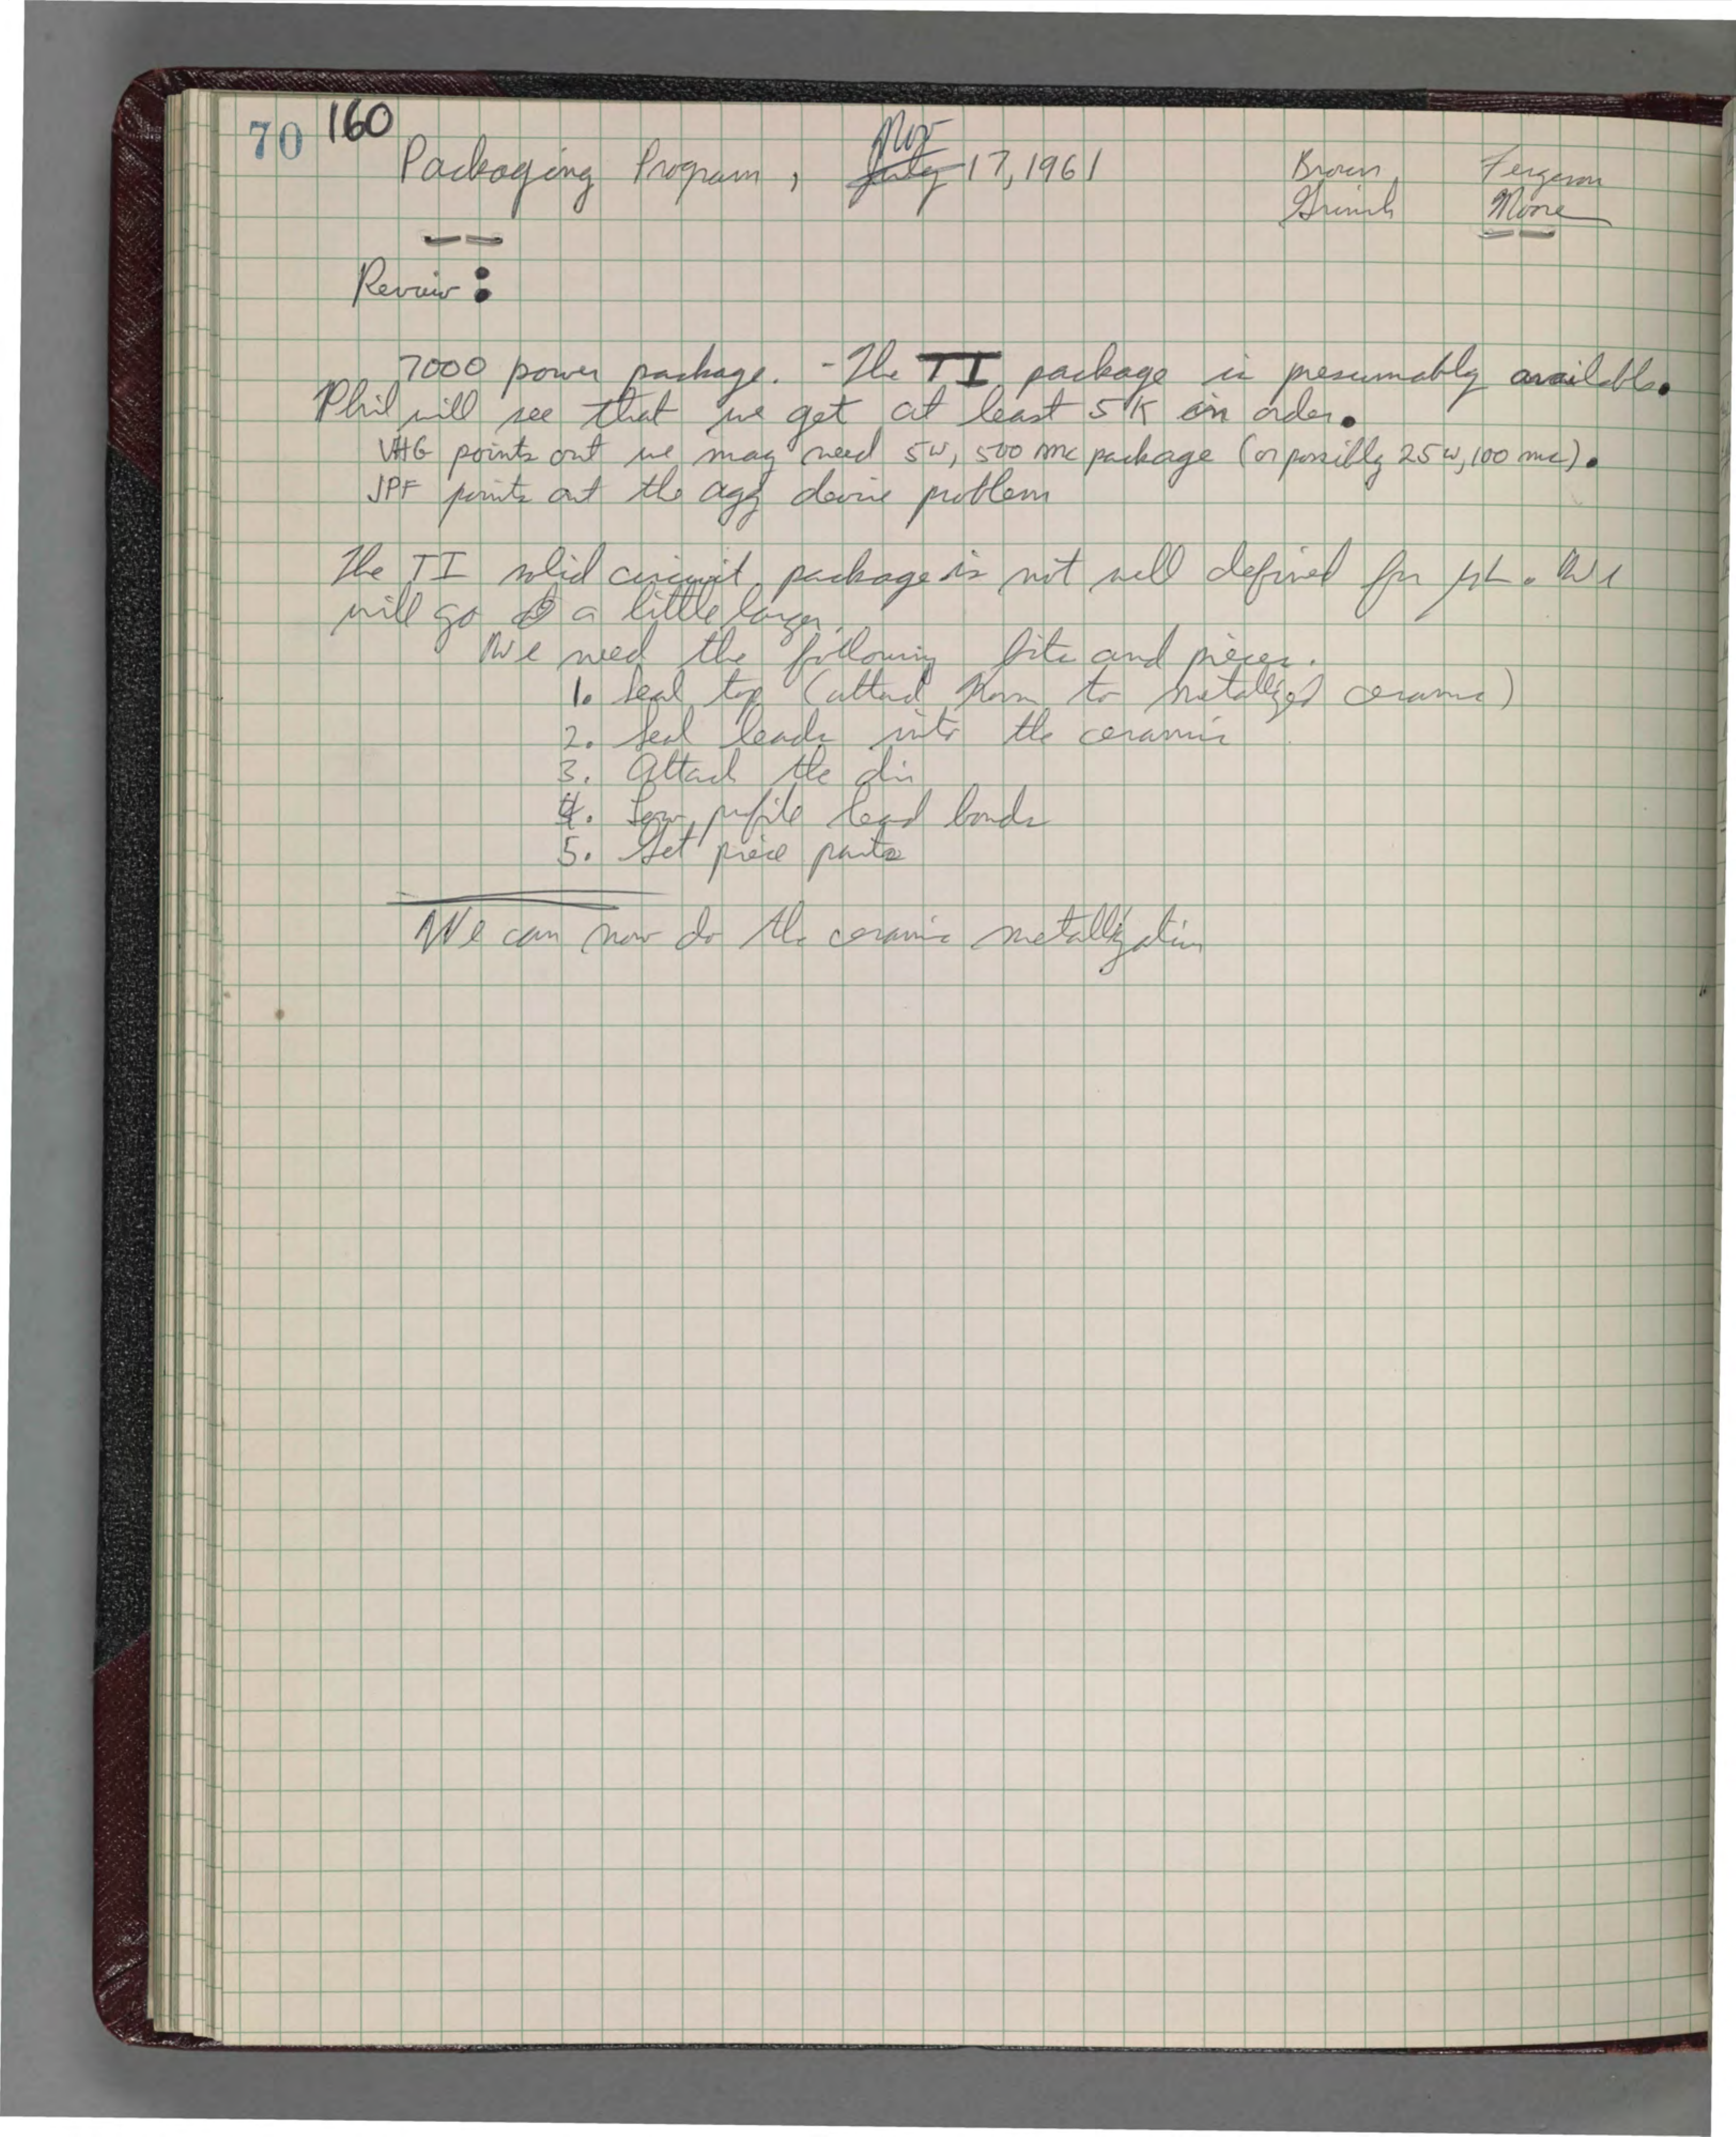 70 160
Packaging Program, July Nov 17, 1961 Brown, Ferguson
Grinich Moore
Review:
7000 power package. - The TI package is presumably available.
Phil will see that we get at least 5K on order.
VHG points out we may need 5w, 500 mc package (or possibly 25w, 100 mc).
JPF points out the agg device problem
The TI solid circuit package is not well defined for µL. We
will go a little larger.
We need the following bits and pieces.
1. Seal top (attach to metallized ceramic)
2. Seal leads into the ceramic
3. Attach the die
4. Low profile lead bonds
5. Get piece parts
We can now do the ceramic metallization